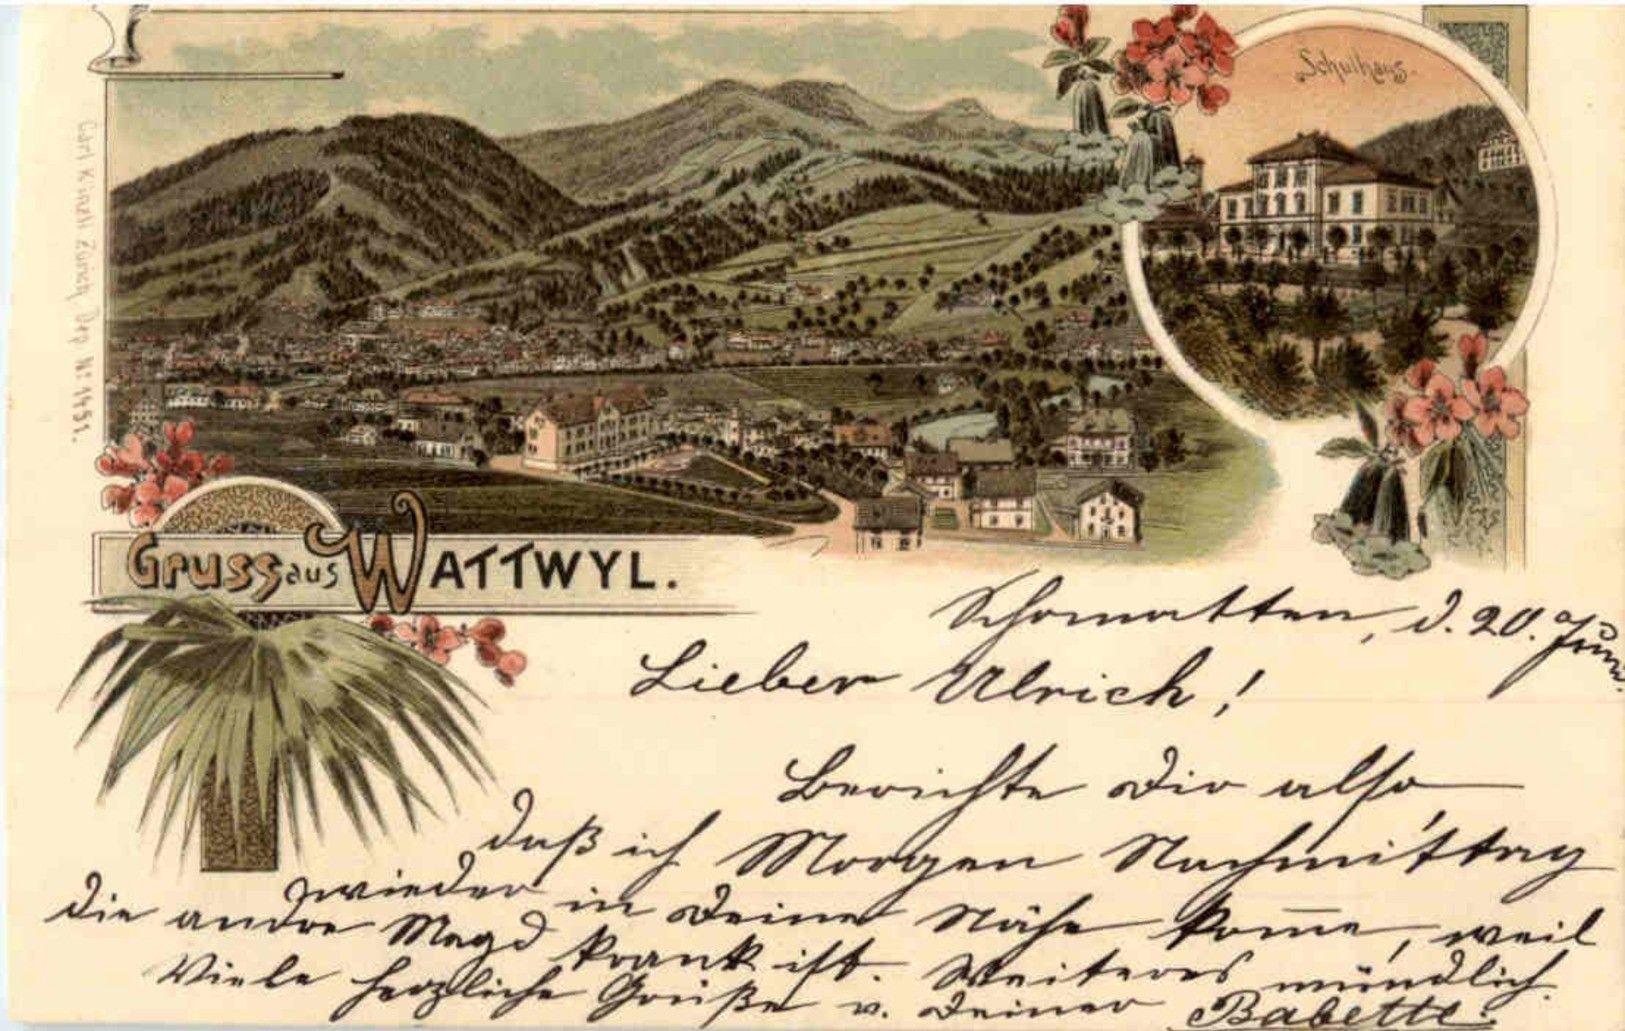 Schulhaus.
Carl Künzli Zürich Dep. No 1451.
Gruss aus WATTWYL.
Schomatten, d. 20. Juni.
Lieber Ulrich!
Berichte Dir also
daß ich Morgen Nachmittag
wieder in Deine Nähe kom̄e, weil
die andre Magd krank ist. Weiteres mündlich.
Viele herzliche Grüße v. Deiner Babette.